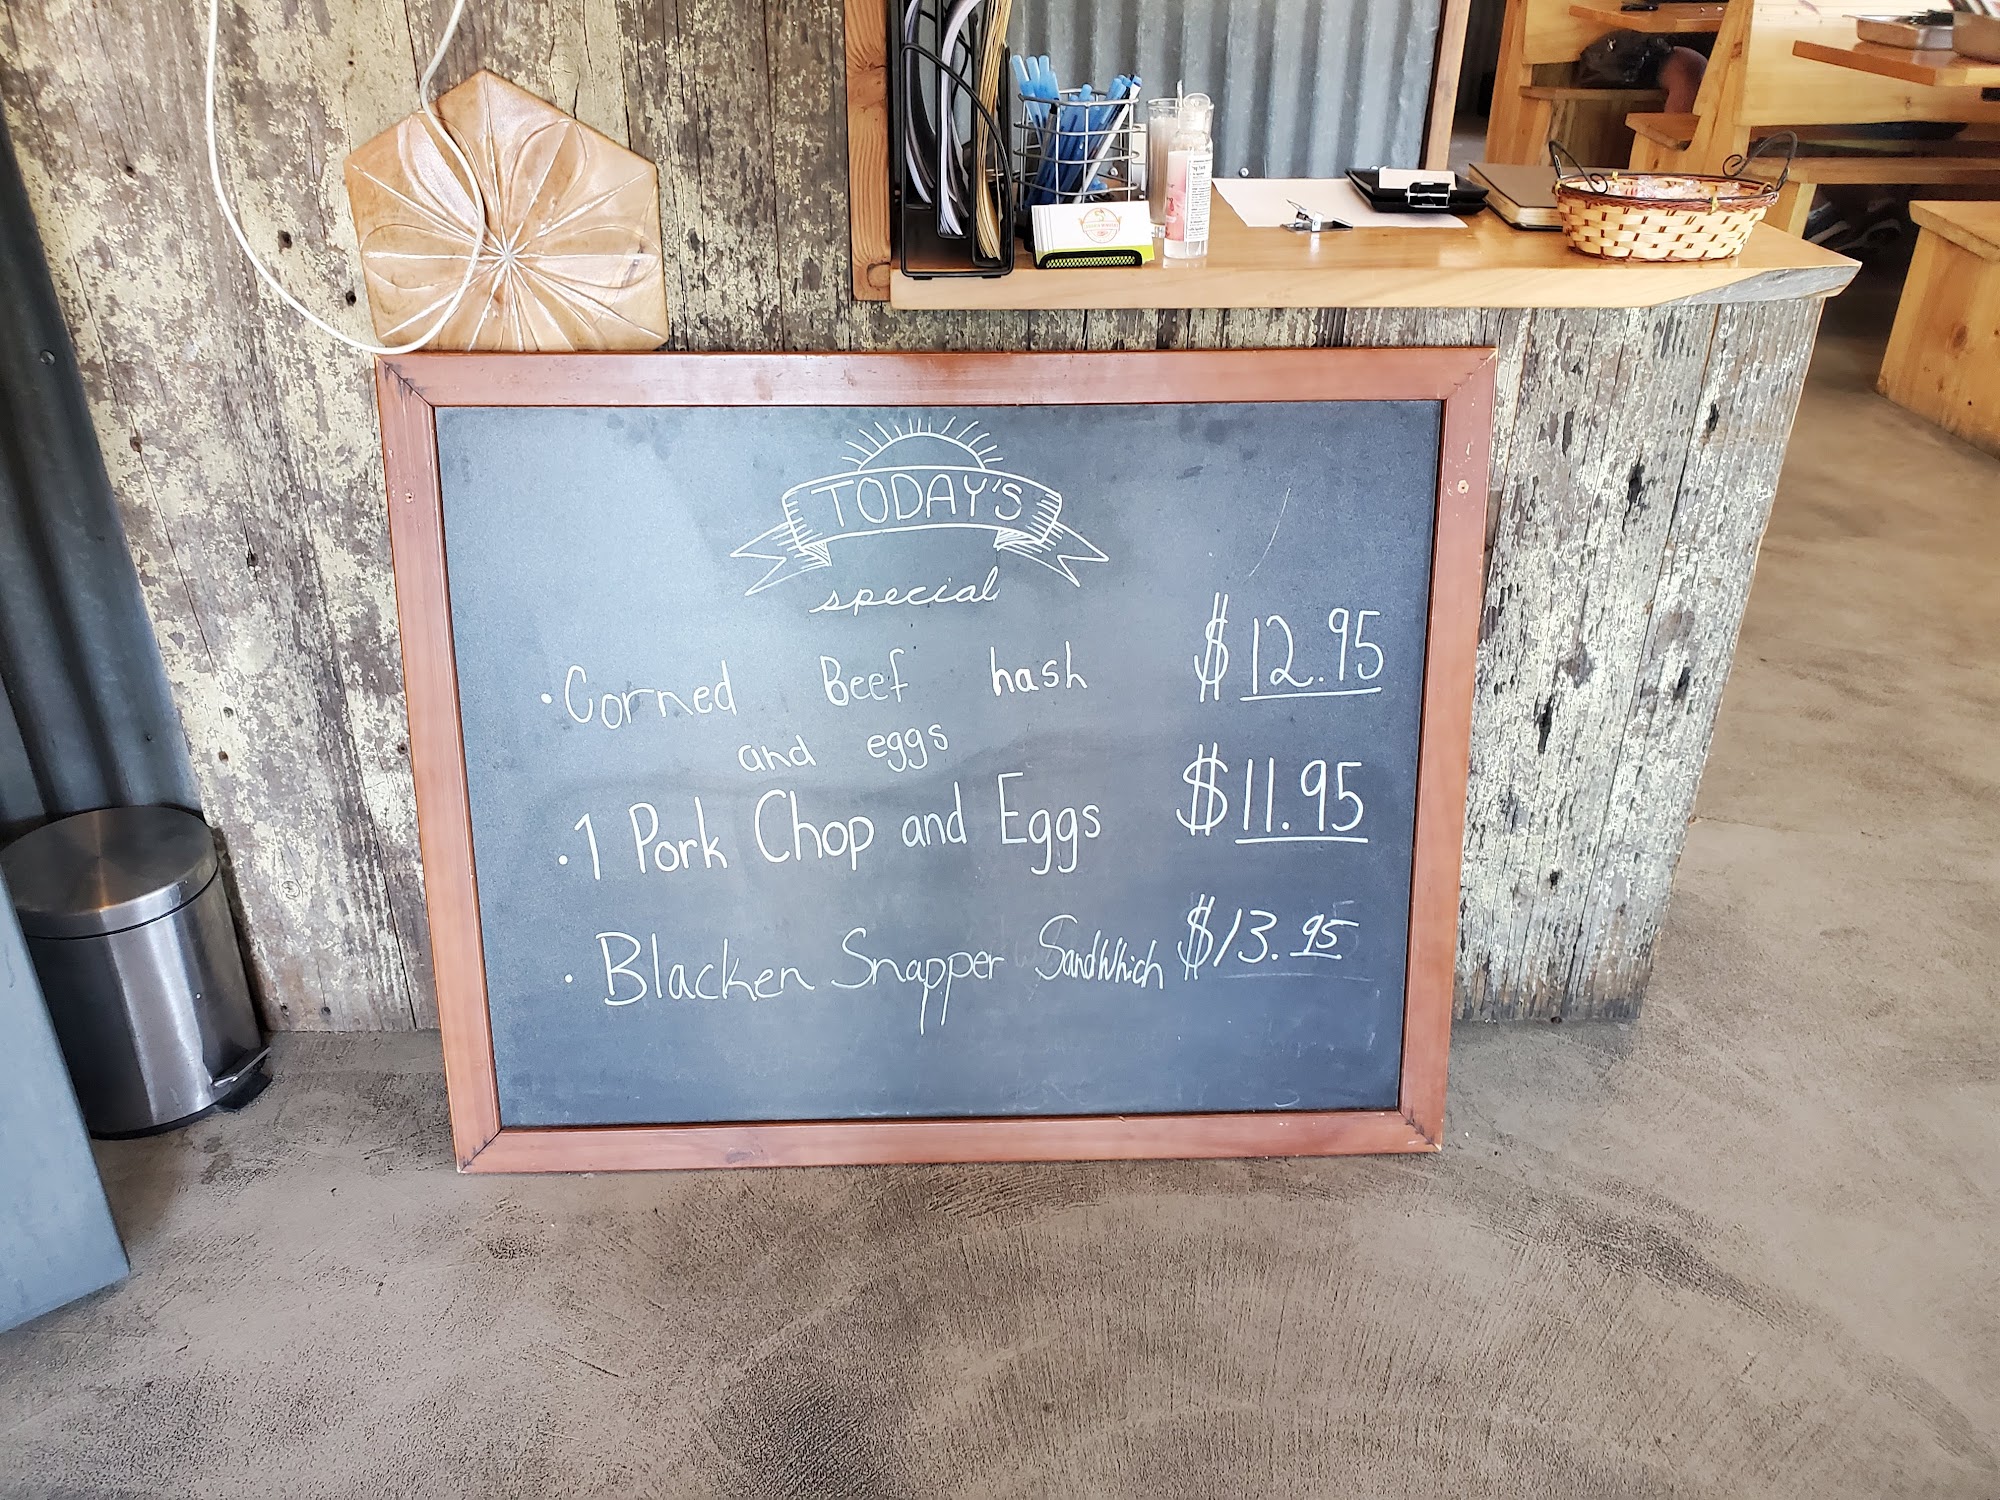 TODAY'S
special
• Corned Beef hash $12.95
and eggs
• 1 Pork Chop and Eggs $11.95
• Blacken Snapper SandWhich $13.95